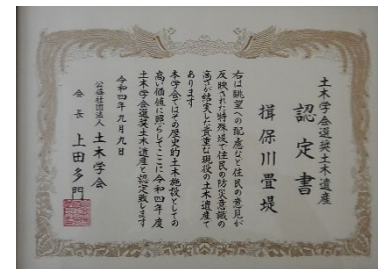 土木学会選奨土木遺産
認定書
揖保川畳堤
右は眺望への配慮など住民の意見が
反映された特殊堤で住民の防災意識の
高さが結実した貴重な現役の土木遺産で
あります
本学会ではその歴史的土木施設としての
高い価値に照らしてここに令和四年度
土木学会選奨土木遺産と認定致します
令和四年九月九日
公益社団法人 土木学会
会長 上田多門